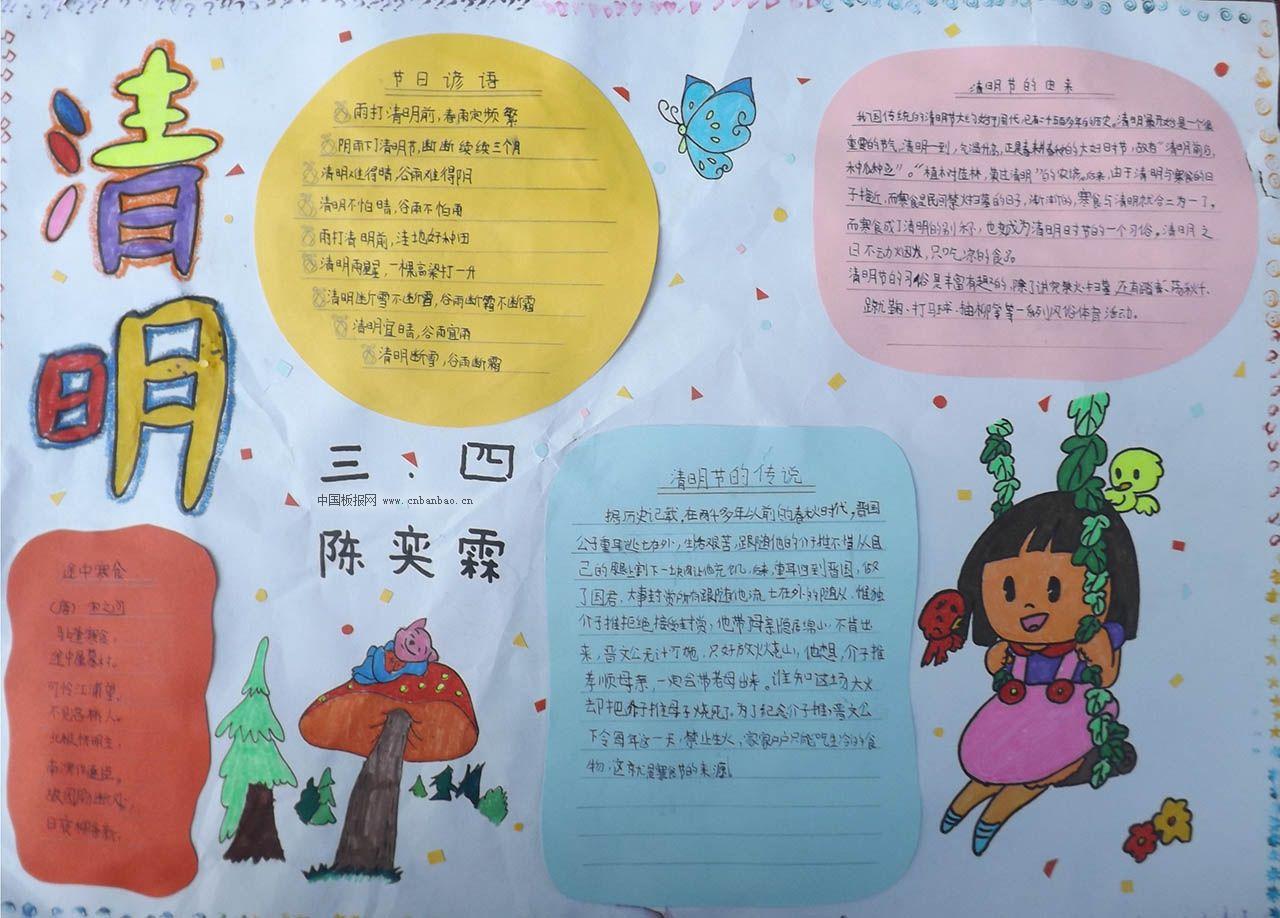 清明
节日谚语
雨打清明前，春雨定频繁
阴雨下了清明节，断断续续三个月
清明难得晴，谷雨难得阴
清明不怕晴，谷雨不怕雨
雨打清明前，洼地好种田
清明雨星星，一棵高粱打一升
清明断雪不断霜，谷雨断霜不断霜
清明宜晴，谷雨宜雨
清明断雪，谷雨断霜
清明节的由来
我国传统的清明节大约始于周代，已有二千五百多年的历史。清明最开始是一个很
重要的节气，清明一到，气温升高，正是春耕春种的大好时节，故有“清明前后，
种瓜种豆”。“植树造林，莫过清明”的农谚。后来，由于清明与寒食的日
子接近，而寒食是民间禁火扫墓的日子，渐渐的，寒食与清明就合二为一了。
而寒食成了清明的别称，也变成为清明时节的一个习俗。清明之
日不动烟火，只吃凉的食品。
清明节的习俗是丰富有趣的，除了讲究禁火、扫墓，还有踏青、荡秋千、
蹴鞠、打马球、插柳等一系列风俗体育活动。
三．四
中国板报网 www.cnbanbao.cn
陈奕霖
清明节的传说
据历史记载，在两千多年以前的春秋时代，晋国
公子重耳逃亡在外，生活艰苦，跟随他的介子推不惜从自
己的腿上割下一块肉让他充饥。后来，重耳回到晋国，做
了国君，大事封赏所有跟随他流亡在外的随从，惟独
介子推拒绝接受封赏，他带母亲隐居绵山，不肯出
来，晋文公无计可施，只好放火烧山，他想，介子推
孝顺母亲，一定会带老母出来。谁知这场大火
却把介子推母子烧死了。为了纪念介子推，晋文公
下令每年这一天，禁止生火，家家户户只能吃生冷的食
物，这就是寒食节的来源。
途中寒食
（唐）宋之问
马上逢寒食，
途中属暮春。
可怜江浦望，
不见洛桥人。
北极怀明主，
南溟作逐臣。
故园肠断处，
日夜柳条新。